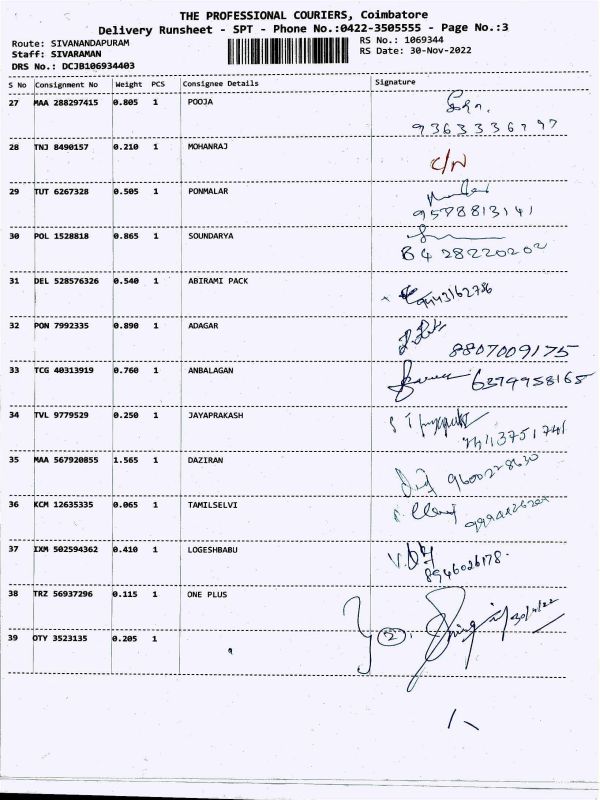 THE PROFESSIONAL COURIERS, Coimbatore
Delivery Runsheet - SPT - Phone No.:0422-3505555 - Page No.:3
Route: SIVANANDAPURAM
RS No.: 1069344
Staff: SIVARAMAN
RS Date: 30-Nov-2022
DRS No.: DCJB106934403
S No Consignment No Weight PCS Consignee Details Signature
27 MAA 288297415 0.805 1 POOJA
28 TNJ 8490157 0.210 1 MOHANRAJ C/N
29 TUT 6267328 0.505 1 PONMALAR
9578813141
30 POL 1528818 0.865 1 SOUNDARYA
31 DEL 528576326 0.540 1 ABIRAMI PACK
9443162786
32 PON 7992335 0.890 1 ADAGAR
8807009175
33 TCG 40313919 0.760 1 ANBALAGAN
6379958165
34 TVL 9779529 0.250 1 JAYAPRAKASH
35 MAA 567920855 1.565 1 DAZIRAN
9600228630
36 KCM 12635335 0.065 1 TAMILSELVI
37 IXM 502594362 0.410 1 LOGESHBABU
8946026178.
38 TRZ 56937296 0.115 1 ONE PLUS
30/11/22
39 OTY 3523135 0.205 1
2